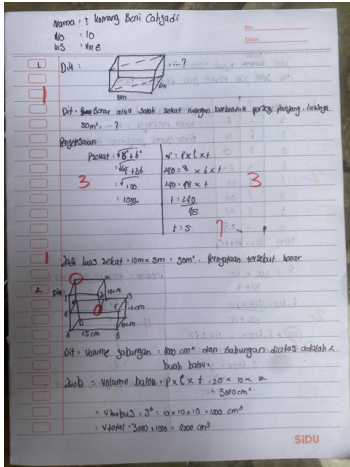 Nama : I Komang Beni Cahyadi
No : 10
No.
Date.
1. Dik :
...?
8m
6m
Dit : Benar atau salah sekat ruangan berbentuk persegi panjang, luasnya
50m², ...?
Penyelesaian
Psekat = √8² + 6²
V = p x l x t
= √64 + 36
240 = 8 x 6 x t
= √100
240 = 48 x t
3
3
= 10m
t = 240
48
t = 5
7
1
1
Jadi luas sekat = 10m x 5m = 50m². Pernyataan tersebut benar
2. Dik :
10cm
12cm
10cm
25cm
Dit = Volume gabungan = 4000 cm³ dan Gabungan diatas adalah 2
buah balok.
Jwb = Volume balok = p x l x t = 25 x 10 x 12
= 3000cm³
= V kubus = S³ = 10 x 10 x 10 = 1000 cm³
= V total = 3000 + 1000 = 4000 cm³
SiDU